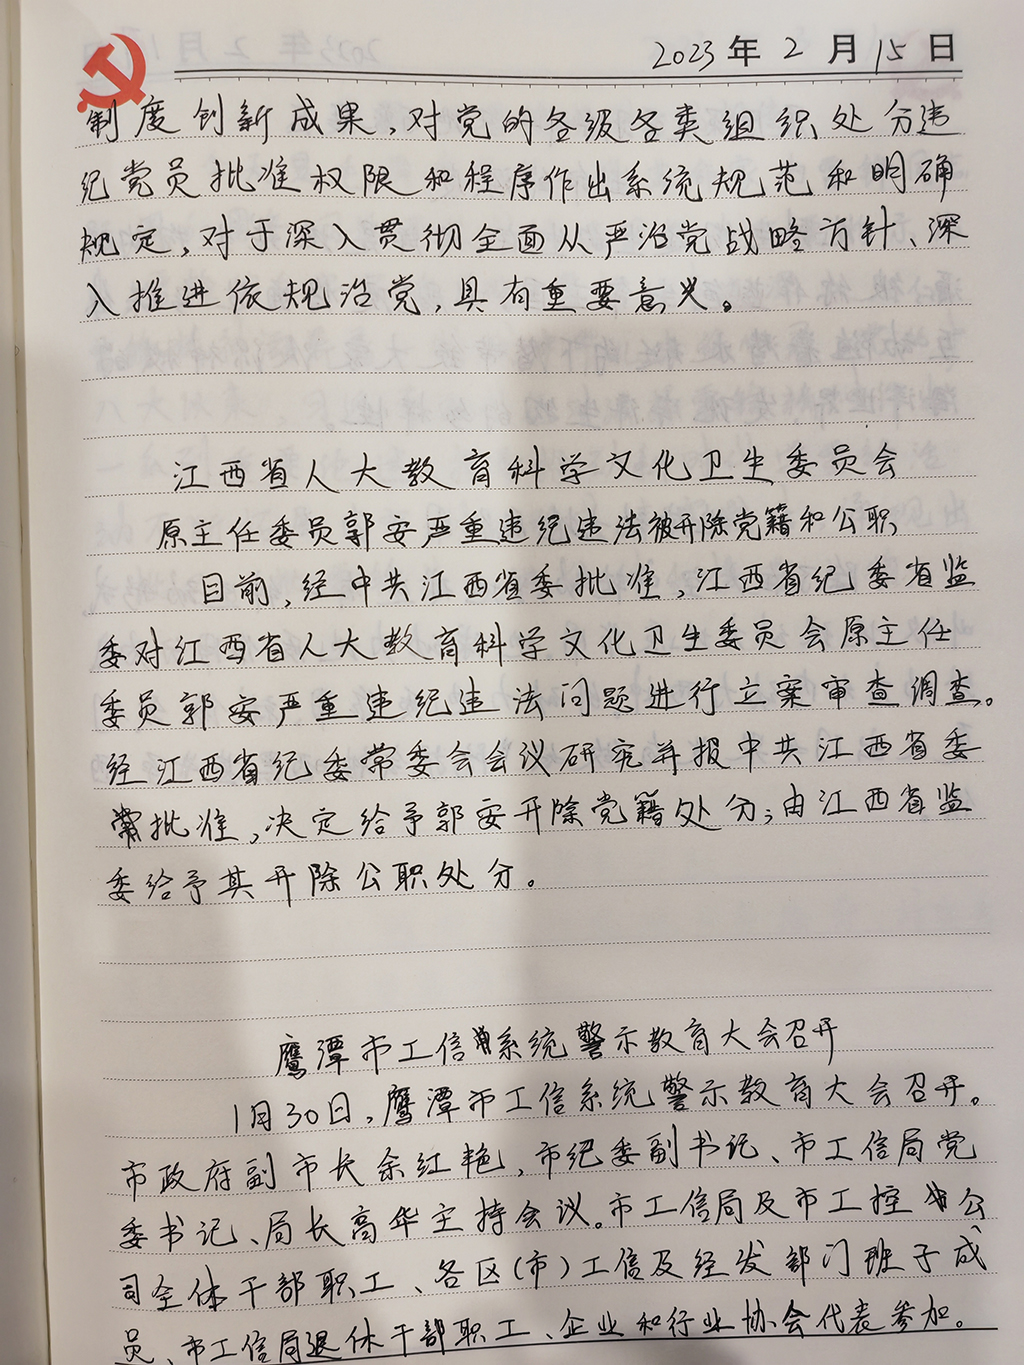 2023年2月15日
制度创新成果，对党的各级各类组织处分违
纪党员批准权限和程序作出系统规范和明确
规定，对于深入贯彻全面从严治党战略方针、深
入推进依规治党，具有重要意义。
江西省人大教育科学文化卫生委员会
原主任委员郭安严重违纪违法被开除党籍和公职
目前，经中共江西省委批准，江西省纪委省监
委对江西省人大教育科学文化卫生委员会原主任
委员郭安严重违纪违法问题进行立案审查调查。
经江西省纪委常委会会议研究并报中共江西省委
批准，决定给予郭安开除党籍处分；由江西省监
委给予其开除公职处分。
鹰潭市工信系统警示教育大会召开
1月30日，鹰潭市工信系统警示教育大会召开。
市政府副市长余红艳，市纪委副书记、市工信局党
委书记、局长高华主持会议。市工信局及市工控公
司全体干部职工、各区(市)工信及经发部门班子成
员、市工信局退休干部职工、企业和行业协会代表参加。